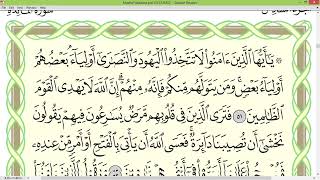 يَٰٓأَيُّهَا ٱلَّذِينَ ءَامَنُوا۟ لَا تَتَّخِذُوا۟ ٱلْيَهُودَ وَٱلنَّصَٰرَىٰٓ أَوْلِيَآءَ بَعْضُهُمْ
أَوْلِيَآءُ بَعْضٍ وَمَن يَتَوَلَّهُم مِّنكُمْ فَإِنَّهُۥ مِنْهُمْ إِنَّ ٱللَّهَ لَا يَهْدِى ٱلْقَوْمَ
ٱلظَّٰلِمِينَ ٥١ فَتَرَى ٱلَّذِينَ فِى قُلُوبِهِم مَّرَضٌ يُسَٰرِعُونَ فِيهِمْ يَقُولُونَ
نَخْشَىٰٓ أَن تُصِيبَنَا دَآئِرَةٌ فَعَسَى ٱللَّهُ أَن يَأْتِىَ بِٱلْفَتْحِ أَوْ أَمْرٍ مِّنْ عِندِهِۦ